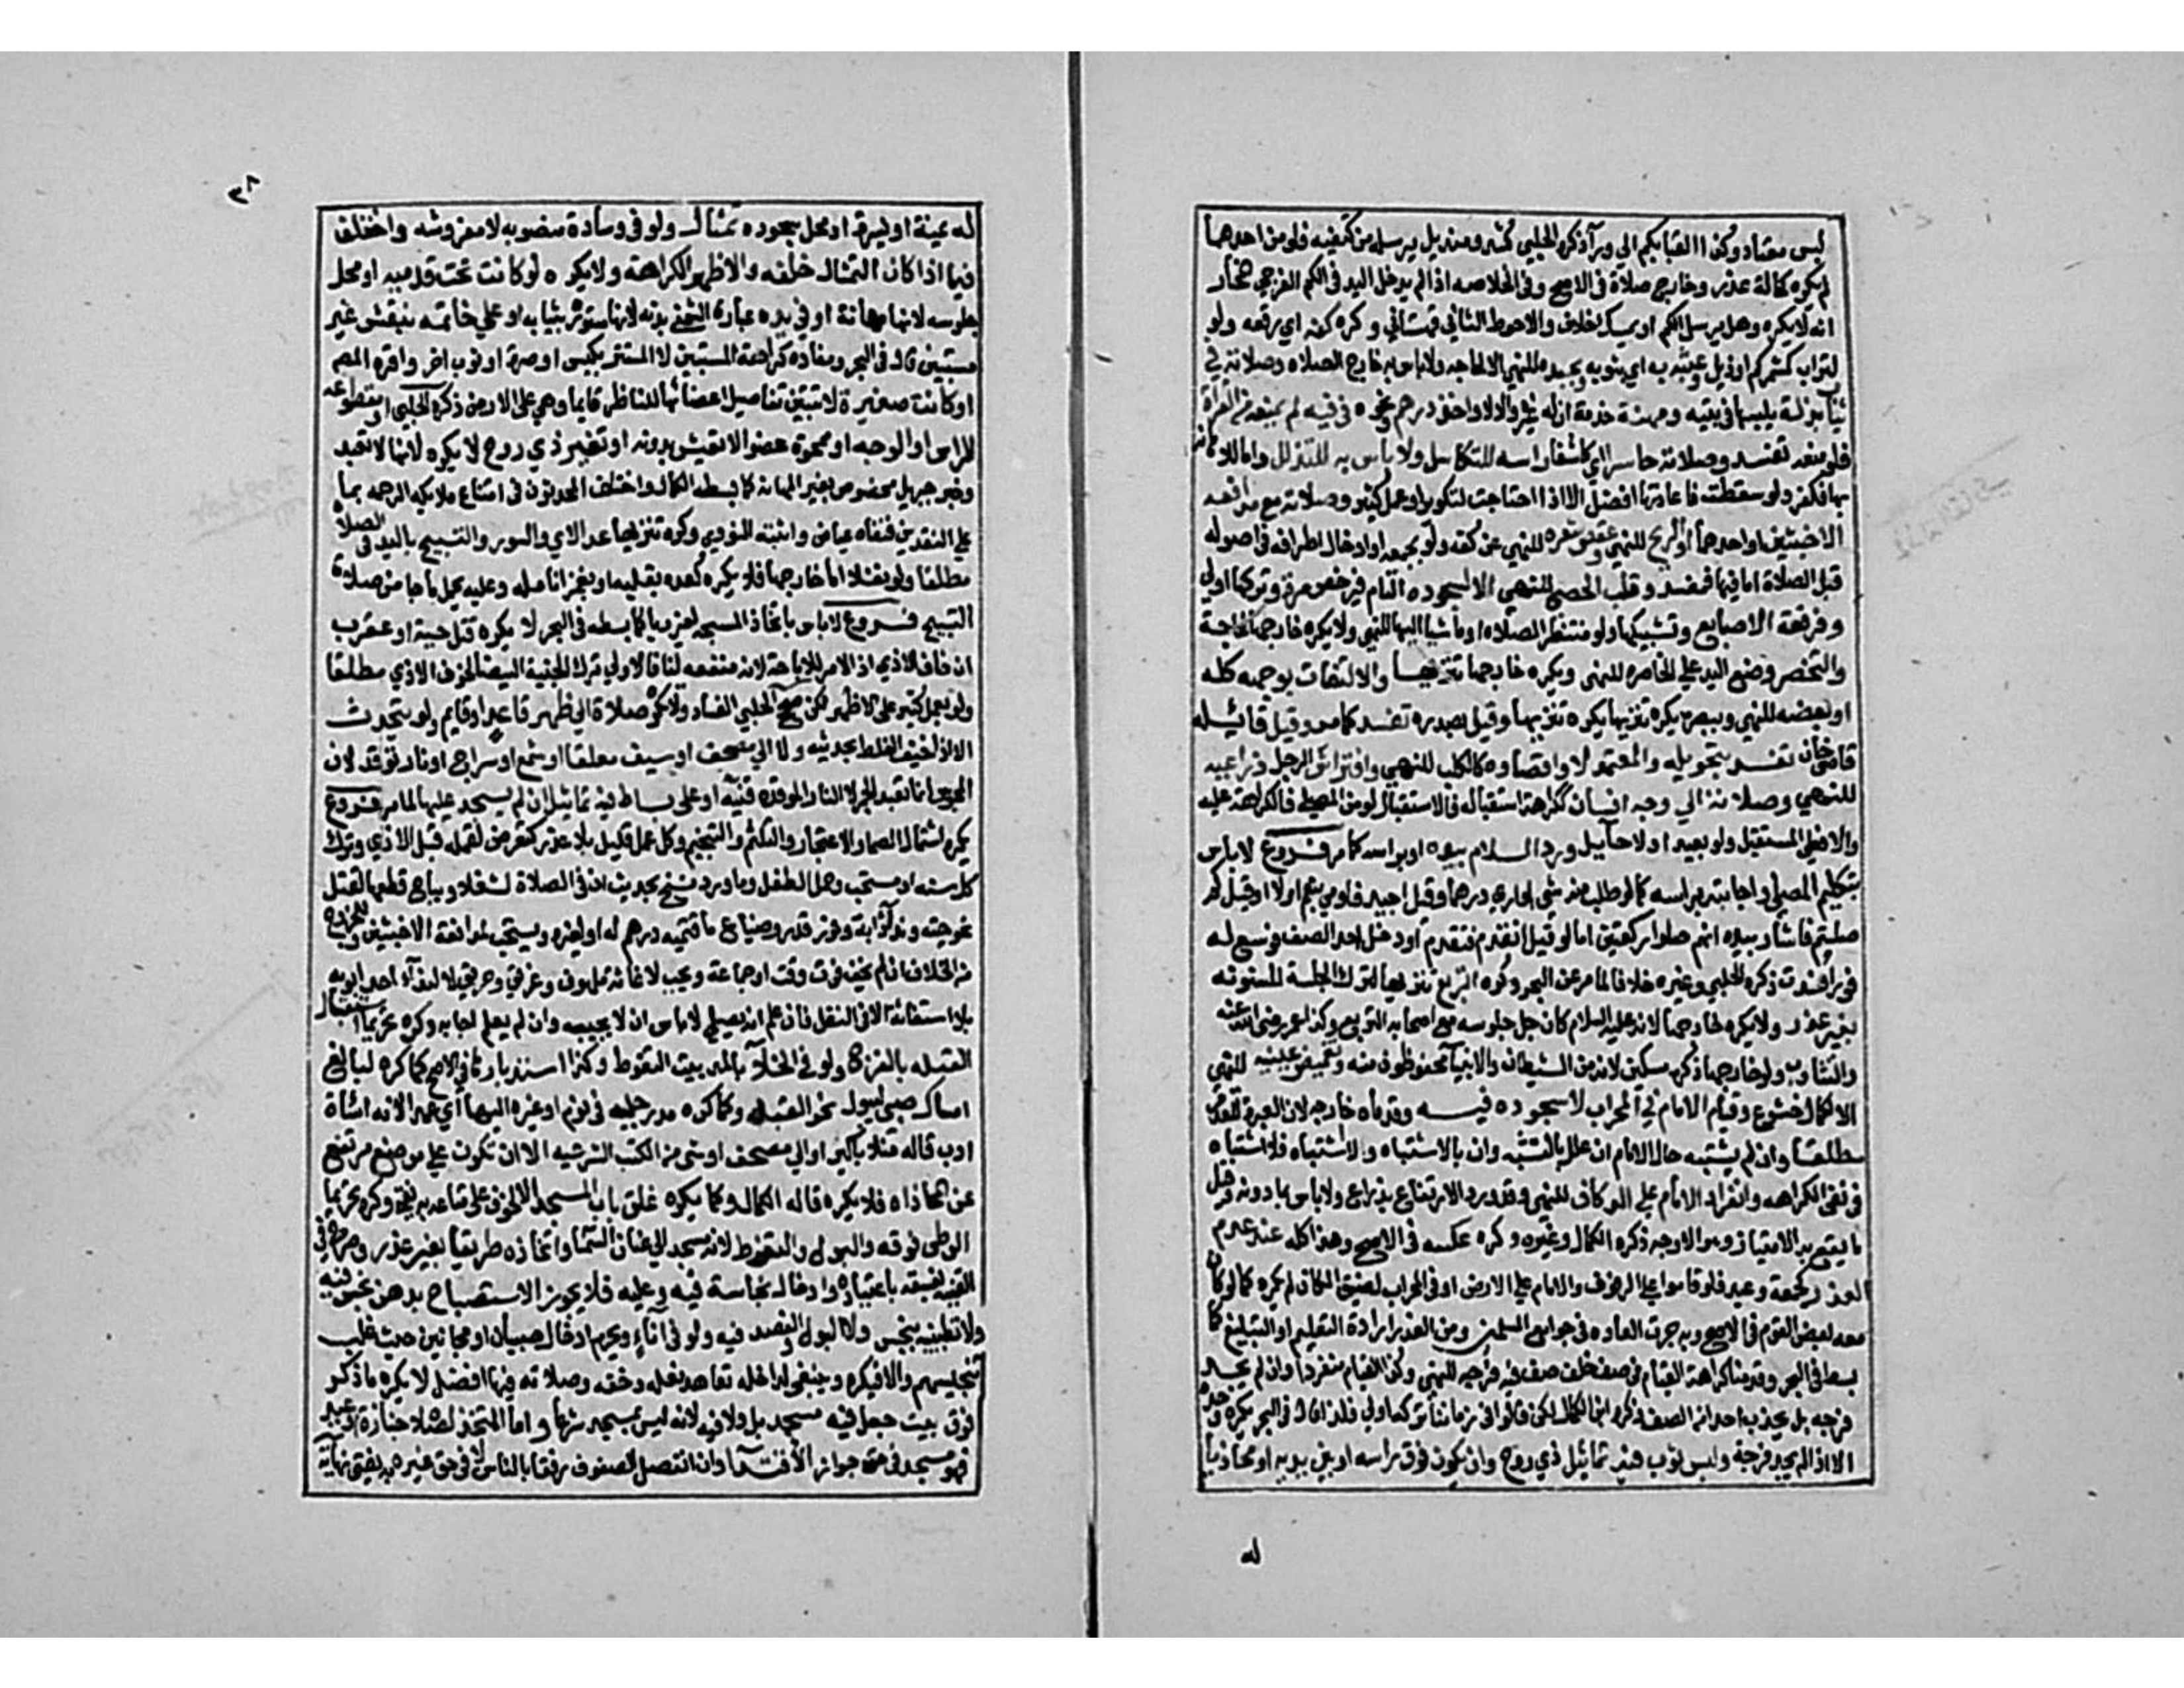 لبس معتاد وكذا القبا بكم الي ورآ ذكره الحلبي كشد ومنديل يرسله من كتفيه فلو من احدهما
لم يكره كحالة عذر وخارج صلاة في الاصح وفي الخلاصه اذا لم يدخل اليد في الكم الفرجي المختار
انه لا يكره وهل يرسل الكم او يمسك خلاف والاحوط الثاني قهستاني وكره كفه اي رفعه ولو
لتراب كمشمر كم او ذيل وعبثه به اي بثوبه وبجسده للنهي الا لحاجه ولا باس به خارج الصلاه وصلاته في
ثياب بذلة يلبسها في بيته ومهنة خدمة ان له غيرها والا لا واخذ درهم ونحوه في فيه لم يمنعه من القرآة
فلو منعه تفسد وصلاته حاسرا اي كاشفا راسه للتكاسل ولا باس به للتذلل واما للاهانه
بها فكفر ولو سقطت فاعادتها افضل الا اذا احتاجت لتكوير او عمل كثير وصلاته مع مدافعه
الاخبثين او احدهما او الريح للنهي وعقص شعره للنهي عن كفه ولو بجمعه او ادخال اطرافه في اصوله
قبل الصلاة اما فيها فمفسد وقلب الحصي للنهي الا لسجوده التام فيرخص مرة وتركها اولي
وفرقعة الاصابع وتشبيكها ولو منتظرا لصلاة او ماشيا اليها للنهي ولا يكره خارجها لحاجة
والتخصر وضع اليد علي الخاصره للنهي ويكره خارجها تنزيها والالتفات بوجهه كله
او بعضه للنهي وببصره يكره تنزيها وبصدره تفسد كما مر وقيل قائله
قاضي خان تفسد بتحويله والمعتمد لا واقعاوه كالكلب للنهي وافتراش الرجل ذراعيه
للنهي وصلاته الي وجه انسان ككراهة استقباله فالاستقبال لو من المصلي فالكراهة عليه
والا فعلي المستقبل ولو بعيدا ولا حآيل ورد السلام بيده او براسه كما مر فروع لا باس
بتكليم المصلي واجابته براسه كما لو طلب منه شي او اري درهما وقيل اجيد فاومي بنعم او لا او قيل كم
صليتم فاشار بيده انهم صلوا ركعتين اما لو قيل له تقدم فتقدم او دخل احد الصف فوسع له
فورا فسدت ذكره الحلبي وغيره خلافا لما مر عن البحر وكره التربع تنزيها لترك الجلسة المسنونه
بغير عذر ولا يكره خارجها لانه عليه السلام كان جل جلوسه مع اصحابه التربع وكذا عمر رضي الله عنه
والتثاوب ولو خارجها ذكره مسكين لانه من الشيطان والانبيآ محفوظون منه وتغميض عينيه للنهي
الا لكمال خشوع وقيام الامام في المحراب لا سجوده فيه وقدماه خارجه لان العبرة للقدم
مطلقا وان لم يشتبه حال الامام ان علل بالتشبه وان بالاشتباه ولا اشتباه فلا اشتباه
في نفي الكراهه وانفراد الامام علي الدوكان للنهي وقدر الارتفاع بذراع ولا باس بما دونه وقيل
ما يقع به الامتياز وهو الاوجه ذكره الكمال وغيره وكره عكسه في الاصح وهذا كله عند عدم
العذر كجمعة وعيد فلو قاموا علي الرفوف والامام علي الارض او في المحراب لضيق المكان لم يكره كما لو كان
معه بعض القوم في الاصح وبه جرت العاده في جوامع المسلمين ومن العذر ارادة التعليم او التبليغ كما
بسط في البحر وقدمنا كراهة القيام في صف خلف صف فيه فرجه للنهي وكذا القيام منفردا وان لم يجد
فرجه بل يجذب احدا من الصف ذكره ابن الكمال لكن قالوا في زماننا تركه اولي فلذا قال في البحر يكره وحده
الا اذا لم يجد فرجة ولبس ثوب فيه تماثيل ذي روح وان يكون فوق راسه او بين يديه او بحذايه
له
٣٨
له يمنة او يسرة او محل سجوده تمثال ولو في وسادة منصوبه لا مفروشه واختلف
فيما اذا كان التمثال خلفه والاظهر الكراهة ولا يكره لو كانت تحت قدميه او محل
جلوسه لانها مهانة او في يده عبارة الشمني بدنه لانها مستورة بثيابه او علي خاتمه بنقش غير
مستبين قال في البحر ومفاده كراهة المستبين لا المستتر بكيس او صرة او ثوب اخر واقره المص
او كانت صغيرة لا تتبين تفاصيل اعضائها للناظر قايما وهي علي الارض ذكره الحلبي او مقطوعه
الراس او الوجه او ممحوة عضو لا تعيش بدونه او لغير ذي روح لا يكره لانها لا تعبد
وخبر جبريل مخصوص بغير المهانه كما بسطه الكمال واختلف المحدثون في امتناع ملايكه الرحمه بما
علي النقدين فنفاه عياض واثبته النووي وكره تنزيها عد الاي والسور والتسبيح باليد في الصلاة
مطلقا ولو نفلا اما خارجها فلا يكره كعده بقلبه او بغمز انامله وعليه يحمل ما جا من صلاة
التسبيح فروع لا باس باتخاذ المسبحه لغير ريا كما بسطه في البحر لا يكره قتل حية او عقرب
ان خاف الاذي اذ الامر للاباحة لانه منفعه لنا فالاولي ترك الحية البيضا لخوف الاذي مطلقا
ولو بعمل كثير علي الاظهر لكن صحح الحلبي الفساد ولا يكره صلاة الي ظهر قاعد او قايم ولو يتحدث
الا اذا خيف الغلط بحديثه ولا الي مصحف او سيف معلقا او شمع او سراج او نار توقد لان
المجوس انما تعبد الجمر لا النار الموقده قنيه او علي بساط فيه تماثيل ان لم يسجد عليها لما مر فروع
يكره اشتمال الصما والاعتجار والتلثم والتنخم وكل عمل قليل بلا عذر كتعرض لقمله قبل الاذي وترك
كل سنه او مستحب وحمل الطفل وما ورد نسخ بحديث ان في الصلاة لشغلا ويباح قطعها لقتل
نحو حيته وند دابة وفور قدر وضياع ما قيمته درهم له او لغيره ويستحب لمدافعة الاخبثين وللخروج
من الخلاف ان لم يخف فوت وقت او جماعة ويجب لاغاثة ملهوف وغريق وحريق لا لندآء احد ابويه
بلا استغاثة الا في النفل فان علم انه يصلي لا باس ان لا يجيبه وان لم يعلم اجابه وكره تحريما استقبال
القبله بالفرج ولو في الخلآ بالمد بيت التغوط وكذا استدبارها في الاصح كما كره لبالغ
امساك صبي ليبول نحو القبله وكما كره مد رجليه في نوم او غيره اليها اي عمدا لانه اساة
ادب قاله منلا باكير او الي مصحف او شي من الكتب الشرعيه الا ان تكون علي موضع مرتفع
عن المحاذاه فلا يكره قاله الكمال وكما يكره غلق باب المسجد الا لخوف علي متاعه به يفتي وكره تحريما
الوطي فوقه والبول والتغوط لانه مسجد الي عنان السما واتخاذه طريقا بغير عذر وصرح في
القنيه بفسقه باعتياده وادخال نجاسة فيه وعليه فلا يجوز الاستصباح بدهن نجس فيه
ولا تطيينه بنجس ولا البول والفصد فيه ولو في اناء ويحرم ادخال صبيان او مجانين حيث غلب
تنجيسهم والا فيكره وينبغي لداخله تعاهد نعله وخفه وصلاته فيهما افضل لا يكره ما ذكر
فوق بيت جعل فيه مسجد بل ولا فيه لانه ليس بمسجد شرعا واما المتخذ لصلاة جنازة او عيد
فهو مسجد في حق جواز الاقتدآ وان انفصل الصفوف رفقا بالناس لا في حق غيره به يفتي نهاية